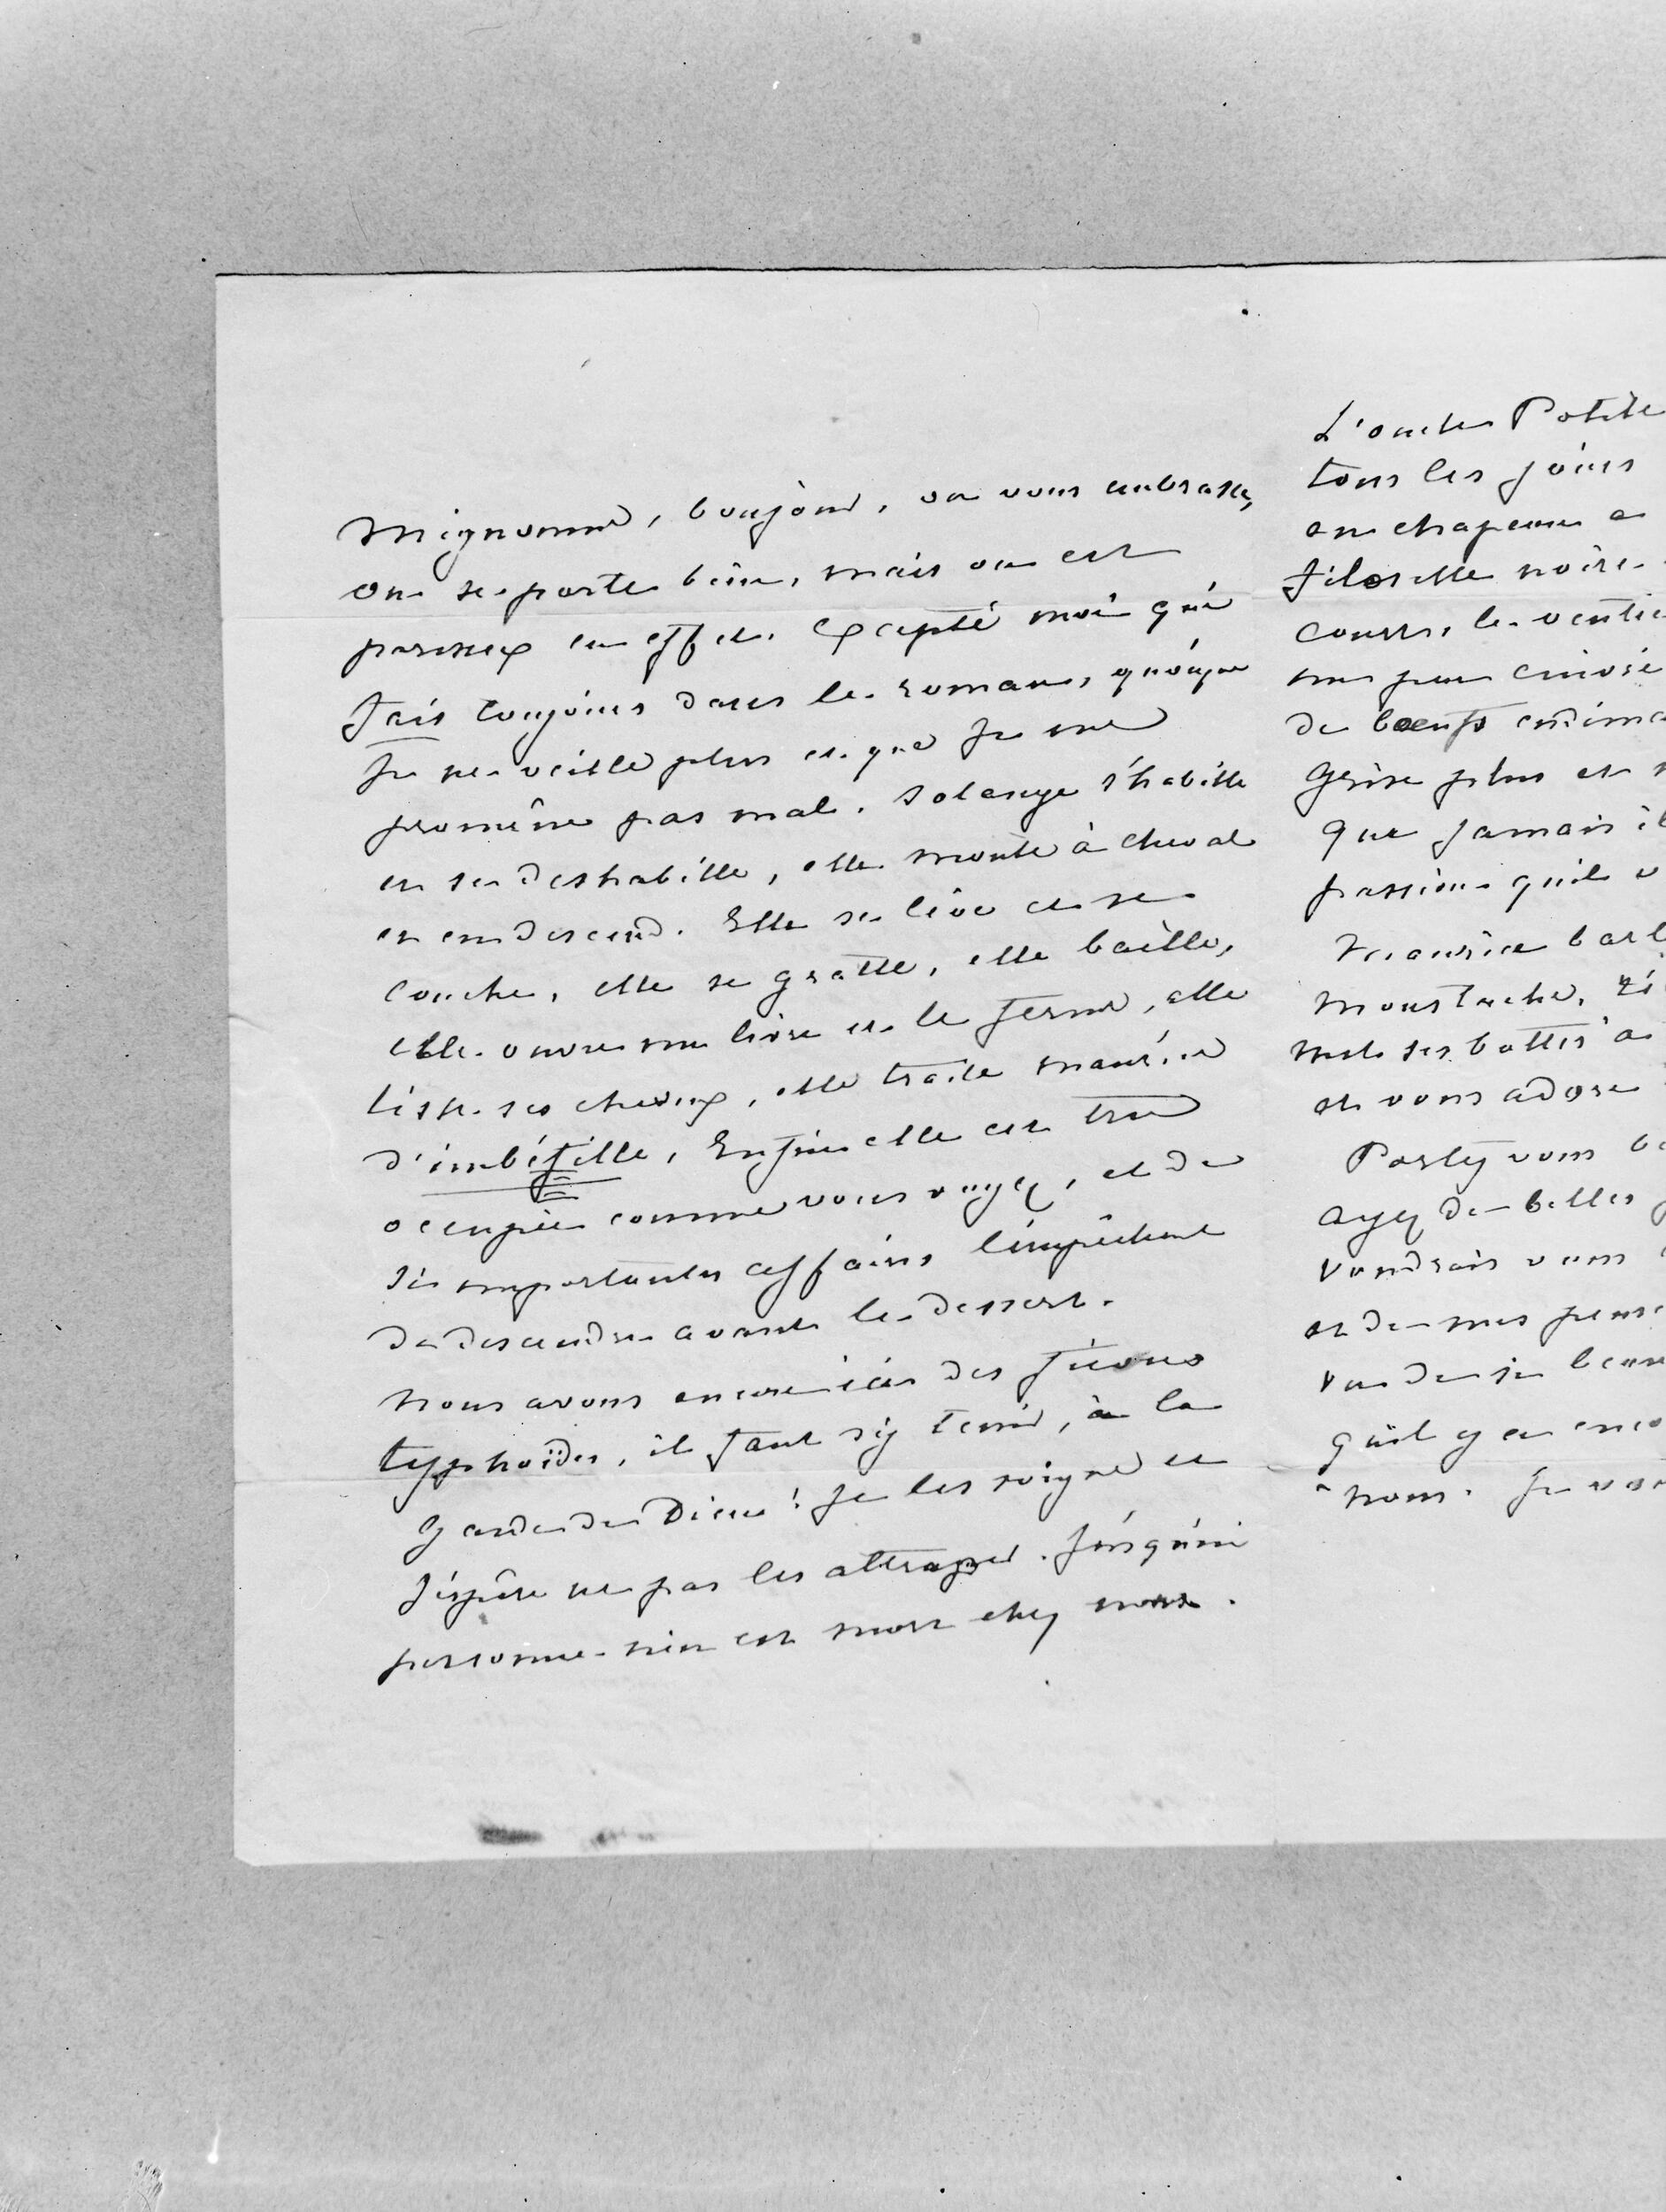 Mignonne, bonjour, on vous embrasse,
on se porte bien, mais on est
paresseux en effet. Excepté moi qui
fais toujours dans le roman, quoique
je ne veille plus et que je me
promène pas mal. Solange s'habille
et se deshabille, elle monte à cheval
et en descend. Elle se lève et se
couche, elle se gratte, elle baille,
elle ouvre un livre et le ferme, elle
lisse ses cheveux, elle traite Maurice
d'imbéfille, Enfin elle est très
occupée comme vous voyez, et de
si importantes affaires l'empêchent
de descendre avant le dessert.
Nous avons encore ici des fièvres
typhoïdes, il faut s'y tenir, à la
garde de Dieu! Je les soigne et
j'espère ne pas les attraper. Jusqu'ici
personne n'en est mort chez nous.
L'oncle
tous les jours
en chapeau
filoselle noire.
course, le
un peu
de boeufs
grise plus et
que jamais il
passion qu'il
Maurice
moustache,
met ses bottes à
et vous adore
vous
ayez de belles
voudrais vous
et de mes
vu de si
qu'il y a
nous. Je